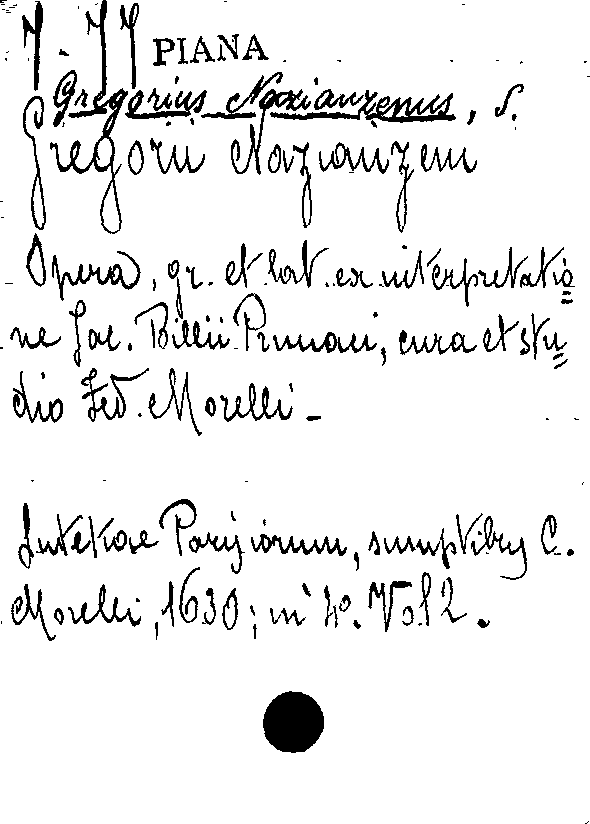 7-77 PIANA
Gregorius Nazianzenus, S.
Gregorii Nazianzeni
Opera, gr. et lat. ex interpretatio=
ne Jac. Billii Prunaei, cura et stu=
dio Fed. Morelli -
Lutetiae Parisiorum, sumptibus C.
Morelli, 1630; in 4º. Vol 2.